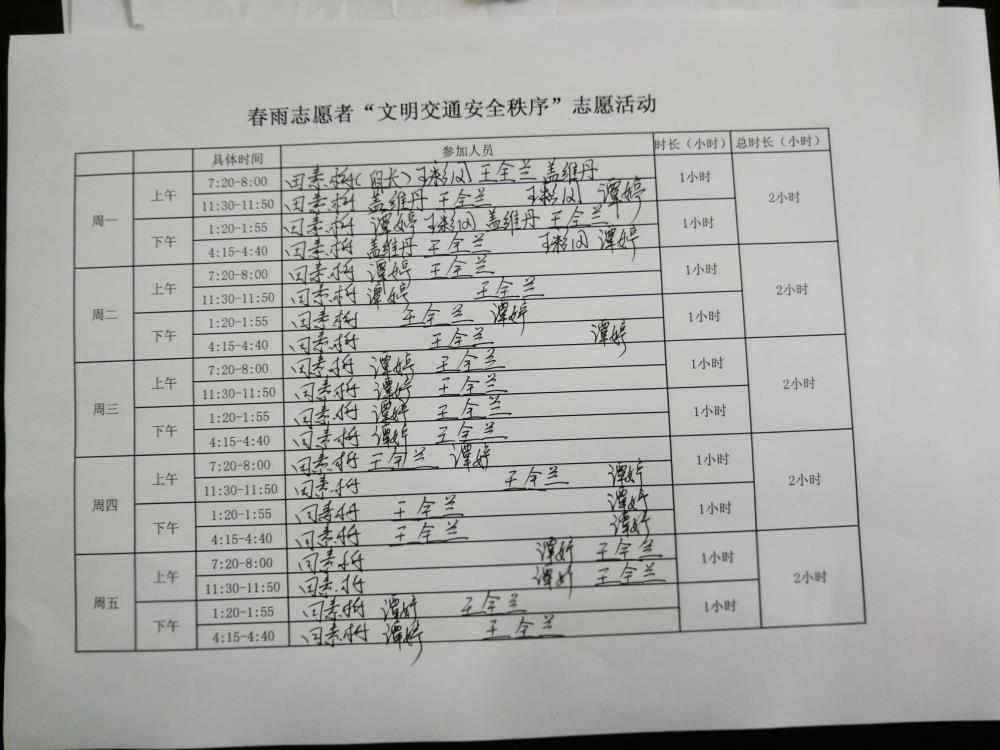 春雨志愿者“文明交通安全秩序”志愿活动
具体时间 参加人员 时长（小时） 总时长（小时）
周一 上午 7:20-8:00 田素 王全兰 盖维丹 1小时 2小时
11:30-11:50 田素 盖维丹 王全兰 谭婷
下午 1:20-1:55 田素 谭婷 盖维丹 王全兰 1小时
4:15-4:40 田素 盖维丹 王全兰 谭婷
周二 上午 7:20-8:00 田素 谭婷 王全兰 1小时 2小时
11:30-11:50 田素 谭婷 王全兰
下午 1:20-1:55 田素 王全兰 谭婷 1小时
4:15-4:40 田素 王全兰 谭婷
周三 上午 7:20-8:00 田素 谭婷 王全兰 1小时 2小时
11:30-11:50 田素 谭婷 王全兰
下午 1:20-1:55 田素 谭婷 王全兰 1小时
4:15-4:40 田素 谭婷 王全兰
周四 上午 7:20-8:00 田素 王全兰 谭婷 1小时 2小时
11:30-11:50 田素 王全兰 谭婷
下午 1:20-1:55 田素 王全兰 谭婷 1小时
4:15-4:40 田素 王全兰 谭婷
周五 上午 7:20-8:00 田素 谭婷 王全兰 1小时 2小时
11:30-11:50 田素 谭婷 王全兰
下午 1:20-1:55 田素 谭婷 王全兰 1小时
4:15-4:40 田素 谭婷 王全兰